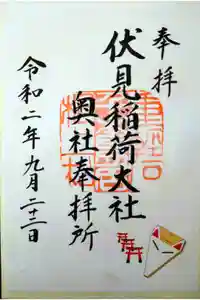 奉拝
伏見稲荷大社
奥社奉拝所
令和二年九月二十三日